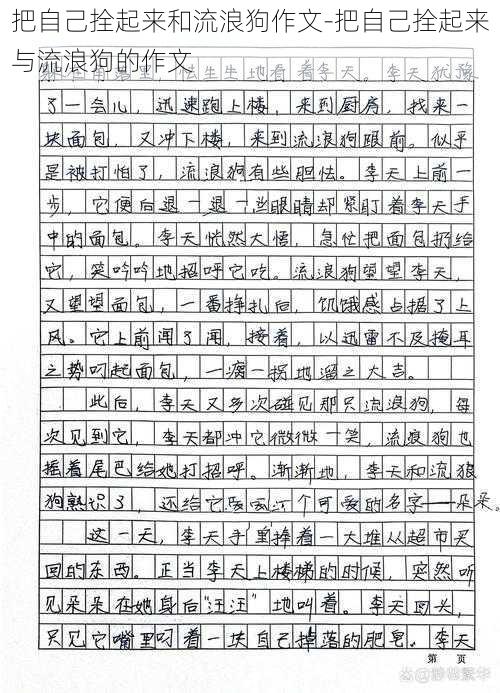 把自己拴起来和流浪狗作文-把自己拴起来
与流浪狗的作文
缩在角落里，怯生生地看着李天。李天犹豫
了一会儿，迅速跑上楼，来到厨房，找来一
块面包，又冲下楼，来到流浪狗跟前。似乎
是被打怕了，流浪狗有些胆怯。李天上前一
步，它便后退一退，一双眼睛却紧盯着李天手
中的面包。李天恍然大悟，急忙把面包扔给
它，笑吟吟地招呼它吃。流浪狗望望李天，
又望望面包，一番挣扎后，饥饿感占据了上
风。它上前闻了闻，接着，以迅雷不及掩耳
之势叼起面包，一瘸一拐地溜之大吉。
此后，李天又多次碰见那只流浪狗，每
次见到它，李天都冲它微微一笑，流浪狗也
摇着尾巴给她打招呼。渐渐地，李天和流狼
狗熟识了，还给它取了个可爱的名字——朵朵。
这一天，李天手里捧着一大堆从超市买
回的东西。正当李天上楼梯的时候，突然听
见朵朵在她身后“汪汪”地叫着。李天回头，
只见它嘴里叼着一块自己掉落的肥皂。李天
第 页